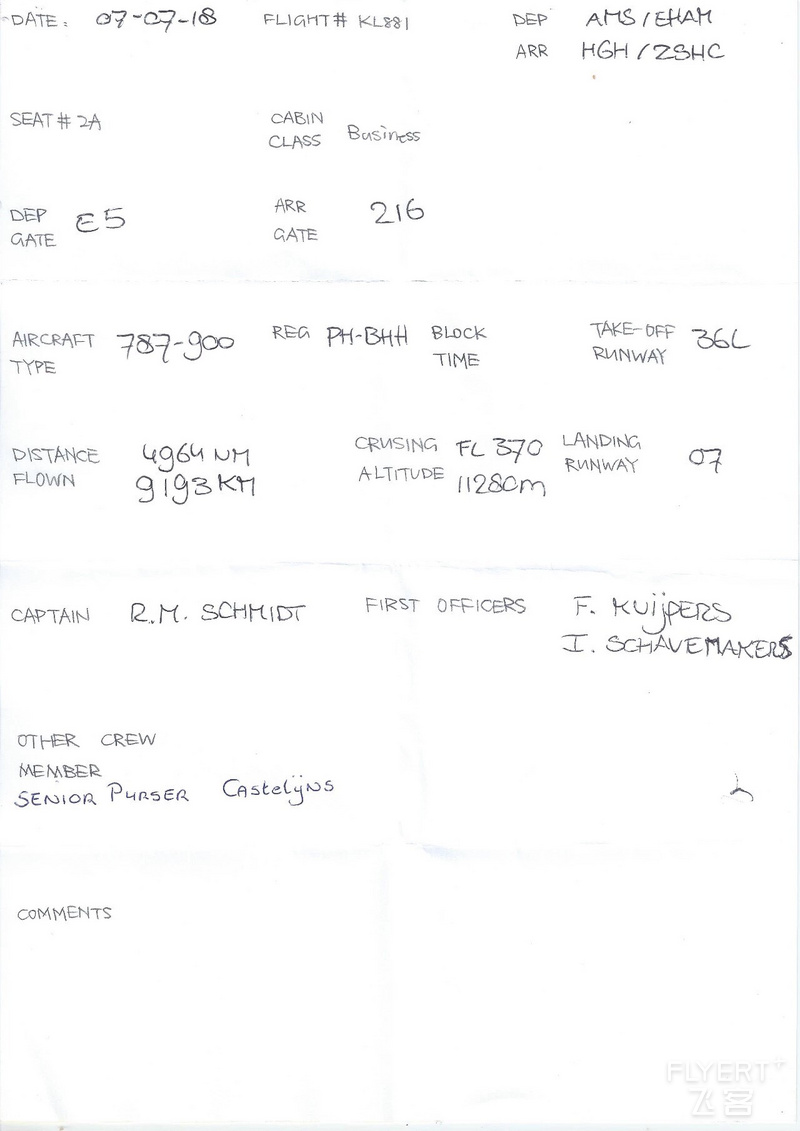 DATE: 07-07-18 FLIGHT# KL881 DEP AMS/EHAM
ARR HGH/ZSHC
SEAT# 2A CABIN CLASS Business
DEP GATE E5 ARR GATE 216
AIRCRAFT TYPE 787-900 REG PH-BHH BLOCK TIME TAKE-OFF RUNWAY 36L
DISTANCE FLOWN 4964 NM CRUSING ALTITUDE FL 370 LANDING RUNWAY 07
9193 KM 11280m
CAPTAIN R.M. SCHMIDT FIRST OFFICERS F. KUijPERS
I. SCHAVEMAKERS
OTHER CREW
MEMBER
SENIOR PURSER Castelijns
COMMENTS
FLYERT+
飞客